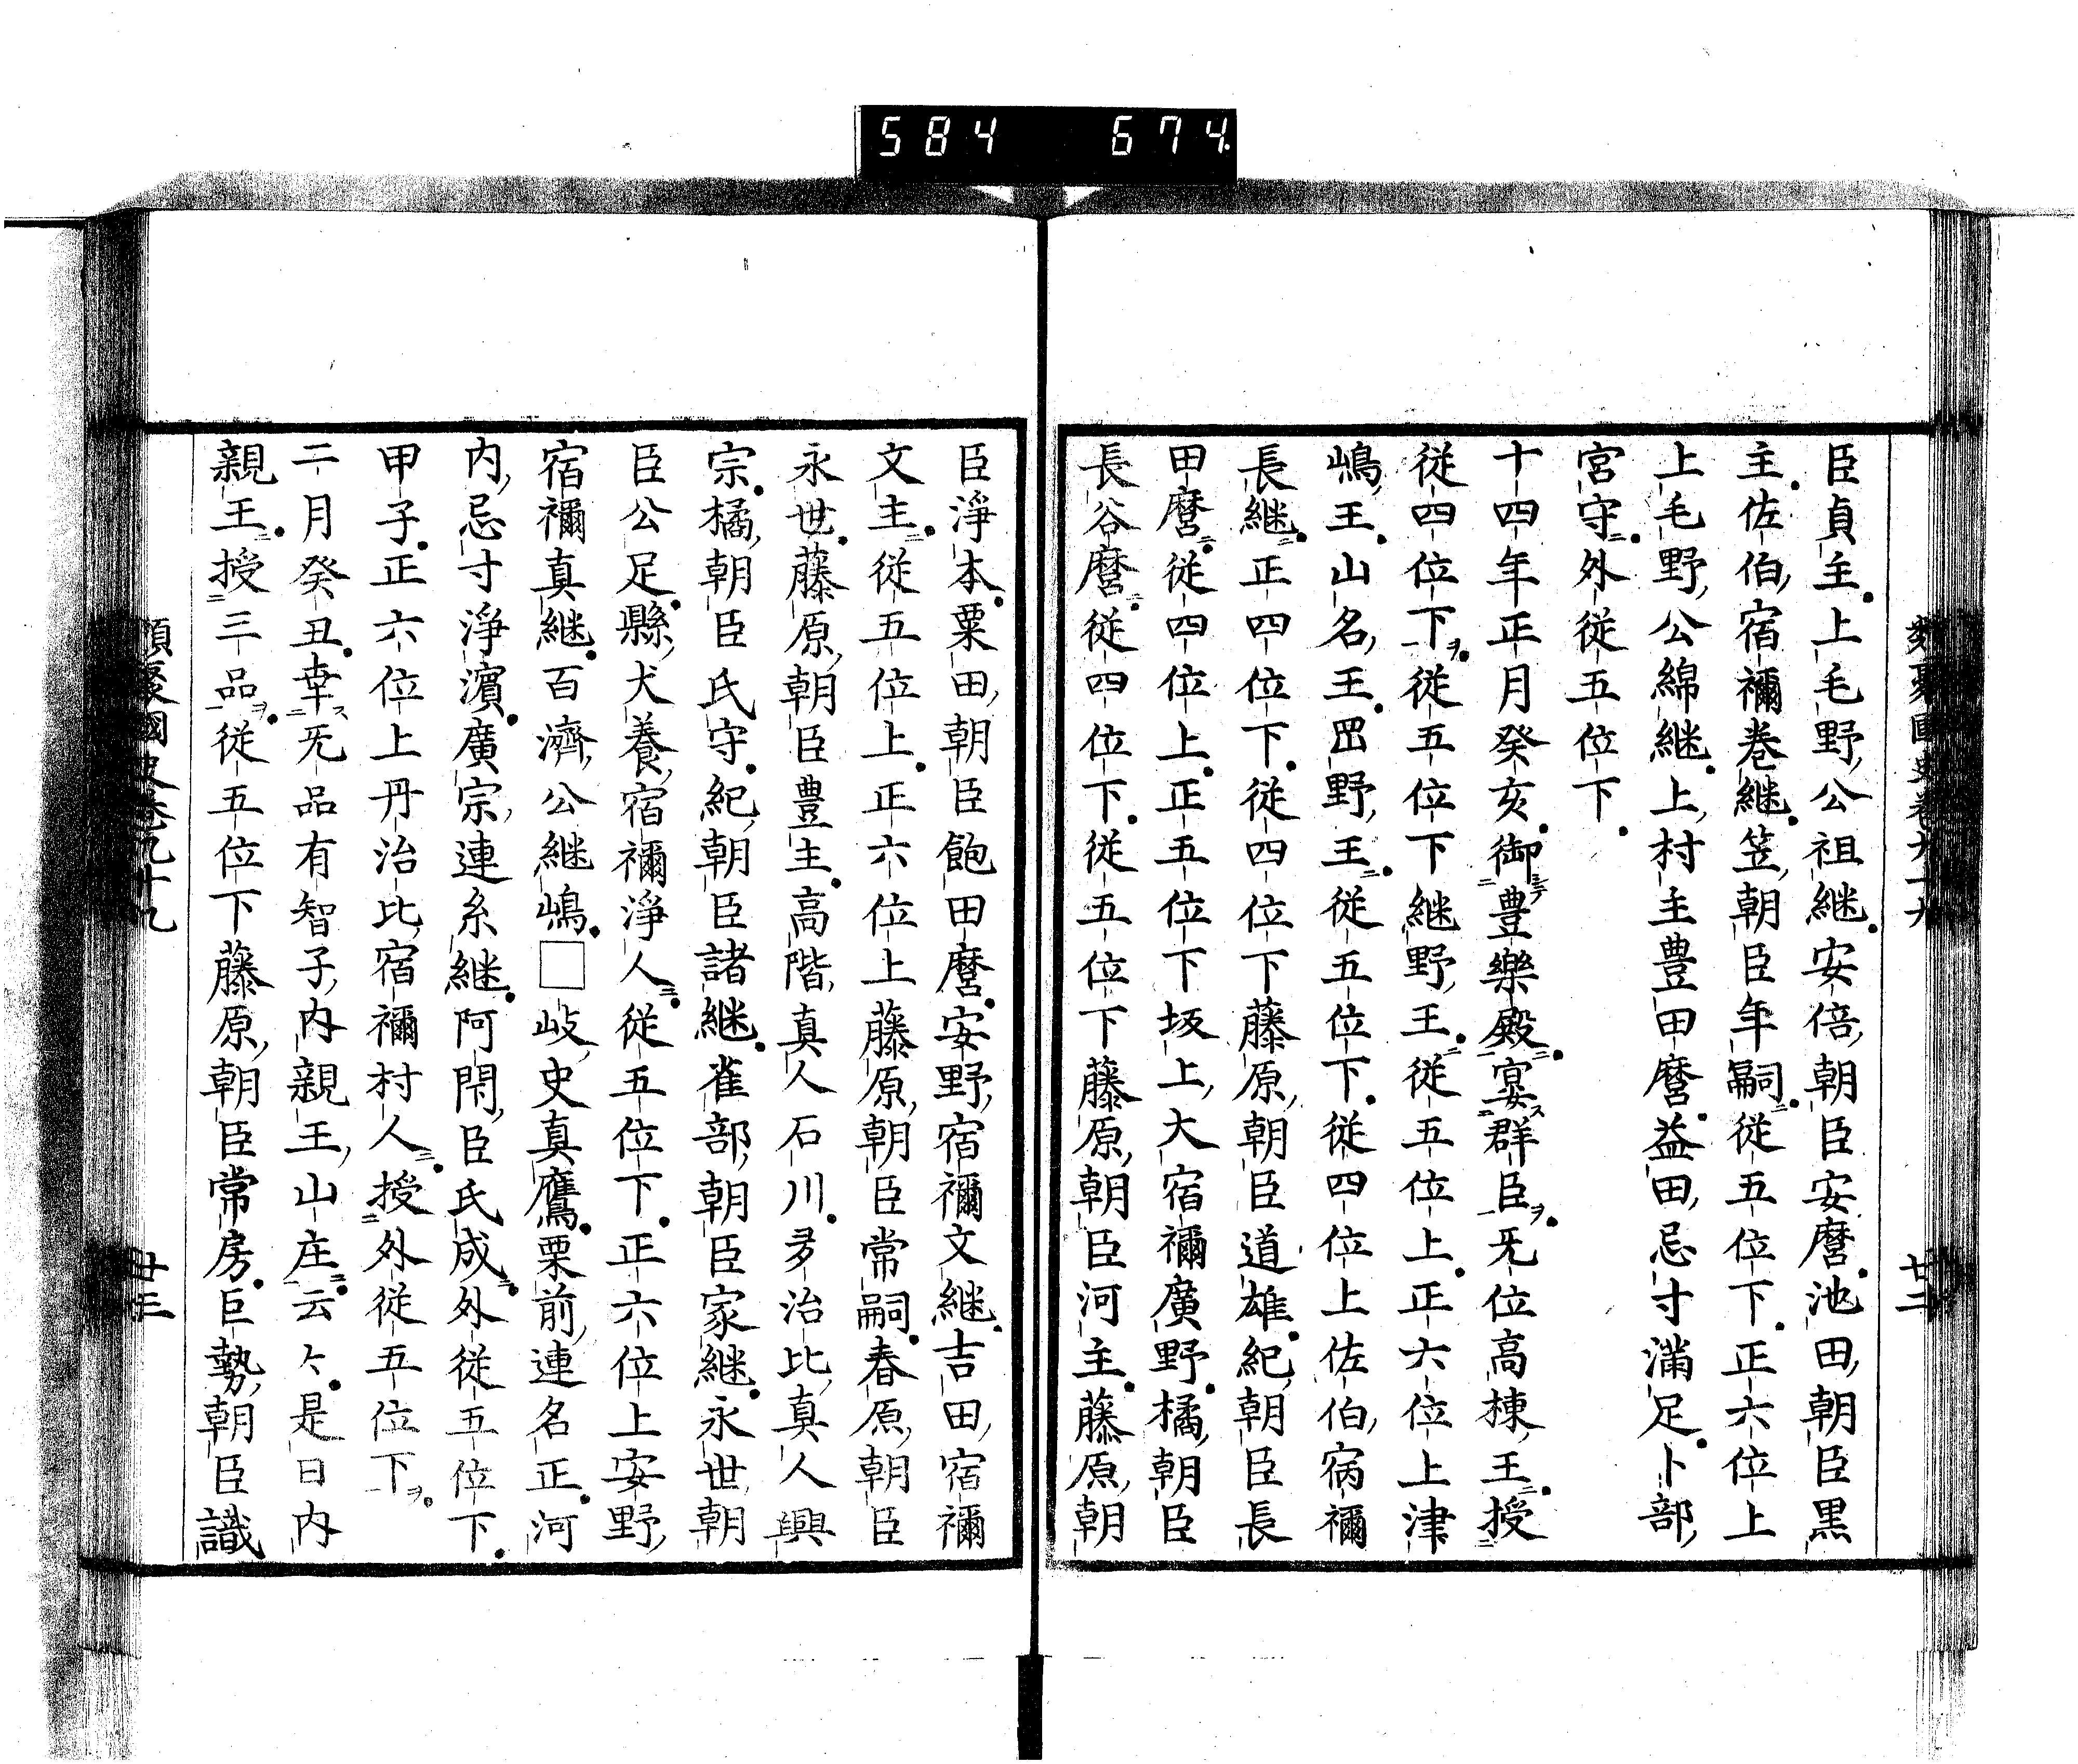 584 674
類聚國史卷九十九 廿二
臣貞主上毛野公祖継安倍朝臣安麿池田朝臣黒
主佐伯宿禰巻継笠朝臣年嗣従五位下正六位上
上毛野公綿継上村主豊田麿益田忌寸満足卜部
宮守外従五位下
十四年正月癸亥御豊樂殿宴群臣旡位高棟王授
従四位下従五位下継野王従五位上正六位上津
嶋王山名王罡野王従五位下従四位上佐伯宿禰
長継正四位下従四位下藤原朝臣道雄紀朝臣長
田麿従四位上正五位下坂上大宿禰廣野橘朝臣
長谷麿従四位下従五位下藤原朝臣河主藤原朝
臣淨本粟田朝臣飽田麿安野宿禰文継吉田宿禰
文主従五位上正六位上藤原朝臣常嗣春原朝臣
永世藤原朝臣豊主高階真人石川多治比真人興
宗橘朝臣氏守紀朝臣諸継雀部朝臣家継永世朝
臣公足縣犬養宿禰淨人従五位下正六位上安野
宿禰真継百濟公継嶋□岐史真鷹栗前連名正河
内忌寸淨濱廣宗連糸継阿閇臣氏成外従五位下
甲子正六位上丹治比宿禰村人授外従五位下
二月癸丑幸旡品有智子内親王山庄云々是日内
親王授三品従五位下藤原朝臣常房巨勢朝臣識
類聚國史卷九十九 廿三